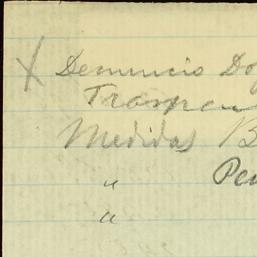 X Denuncio Do
Traspa
Medidas B
" Pe
"